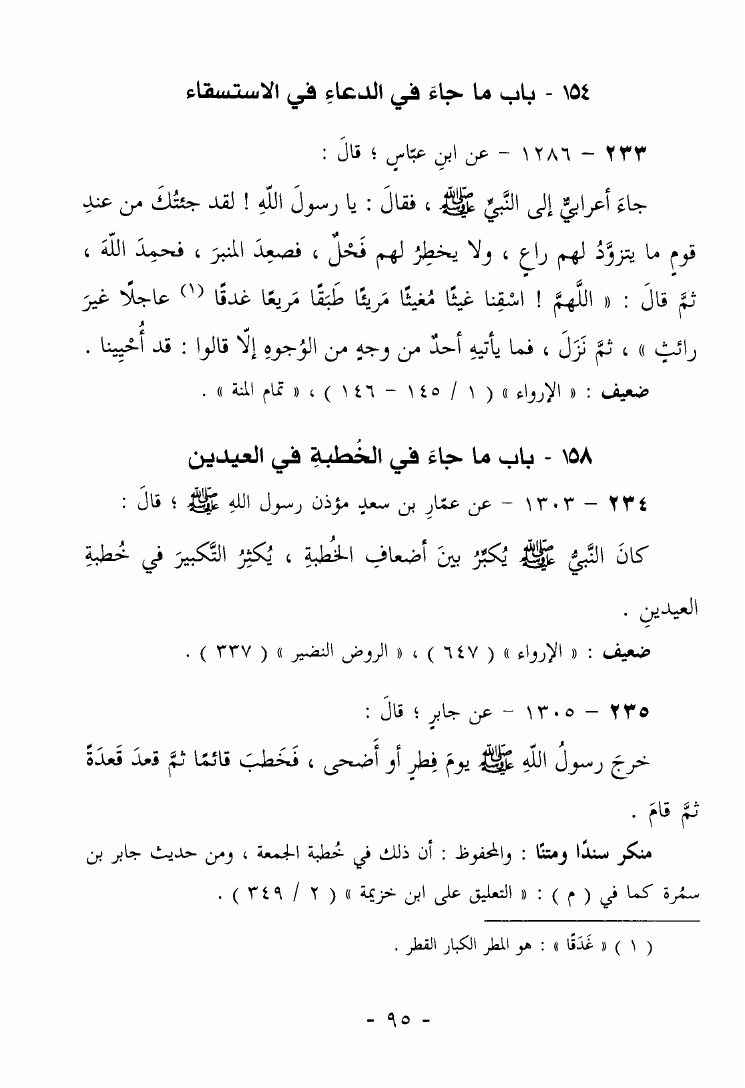 ١٥٤ - باب ما جاءَ في الدعاءِ في الاستسقاء
٢٣٣ – ١٢٨٦ – عن ابنِ عبّاسٍ ؛ قالَ :
جاءَ أعرابيٌّ إلى النَّبيِّ ﷺ ، فقالَ : يا رسولَ اللّهِ ! لقد جئتُكَ من عندِ
قومٍ ما يتزوَّدُ لهم راعٍ ، ولا يخطِرُ لهم فَحْلٌ ، فصعِدَ المنبرَ ، فحمِدَ اللّهَ ،
ثمَّ قالَ : « اللَّهمَّ ! اسْقِنا غيثًا مُغيثًا مَريئًا طَبَقًا مَريعًا غدقًا (١) عاجلًا غيرَ
رائثٍ » ، ثمَّ نَزَلَ ، فما يأتيهِ أحدٌ من وجهٍ من الوُجوهِ إلّا قالوا : قد أُحْيِينا .
ضعيف : « الإرواء » ( ١ / ١٤٥ – ١٤٦ ) ، « تمام المنة » .
١٥٨ - باب ما جاءَ في الخُطبةِ في العيدين
٢٣٤ – ١٣٠٣ – عن عمّارِ بن سعدٍ مؤذن رسول اللهِ ﷺ ؛ قالَ :
كانَ النَّبيُّ ﷺ يُكبِّرُ بينَ أضعافِ الخُطبةِ ، يُكثِرُ التَّكبيرَ في خُطبةِ
العيدينِ .
ضعيف : « الإرواء » ( ٦٤٧ ) ، « الروض النضير » ( ٣٣٧ ) .
٢٣٥ – ١٣٠٥ – عن جابرٍ ؛ قالَ :
خرجَ رسولُ اللّهِ ﷺ يومَ فِطرٍ أو أَضحى ، فَخَطبَ قائمًا ثمَّ قعدَ قَعدَةً
ثمَّ قامَ .
منكر سندًا ومتنًا : والمحفوظ : أن ذلك في خُطبة الجمعة ، ومن حديث جابر بن
سمُرة كما في ( م ) : « التعليق على ابن خزيمة » ( ٢ / ٣٤٩ ) .
( ١ ) « غَدَقًا » : هو المطر الكبار القطر .
- ٩٥ -